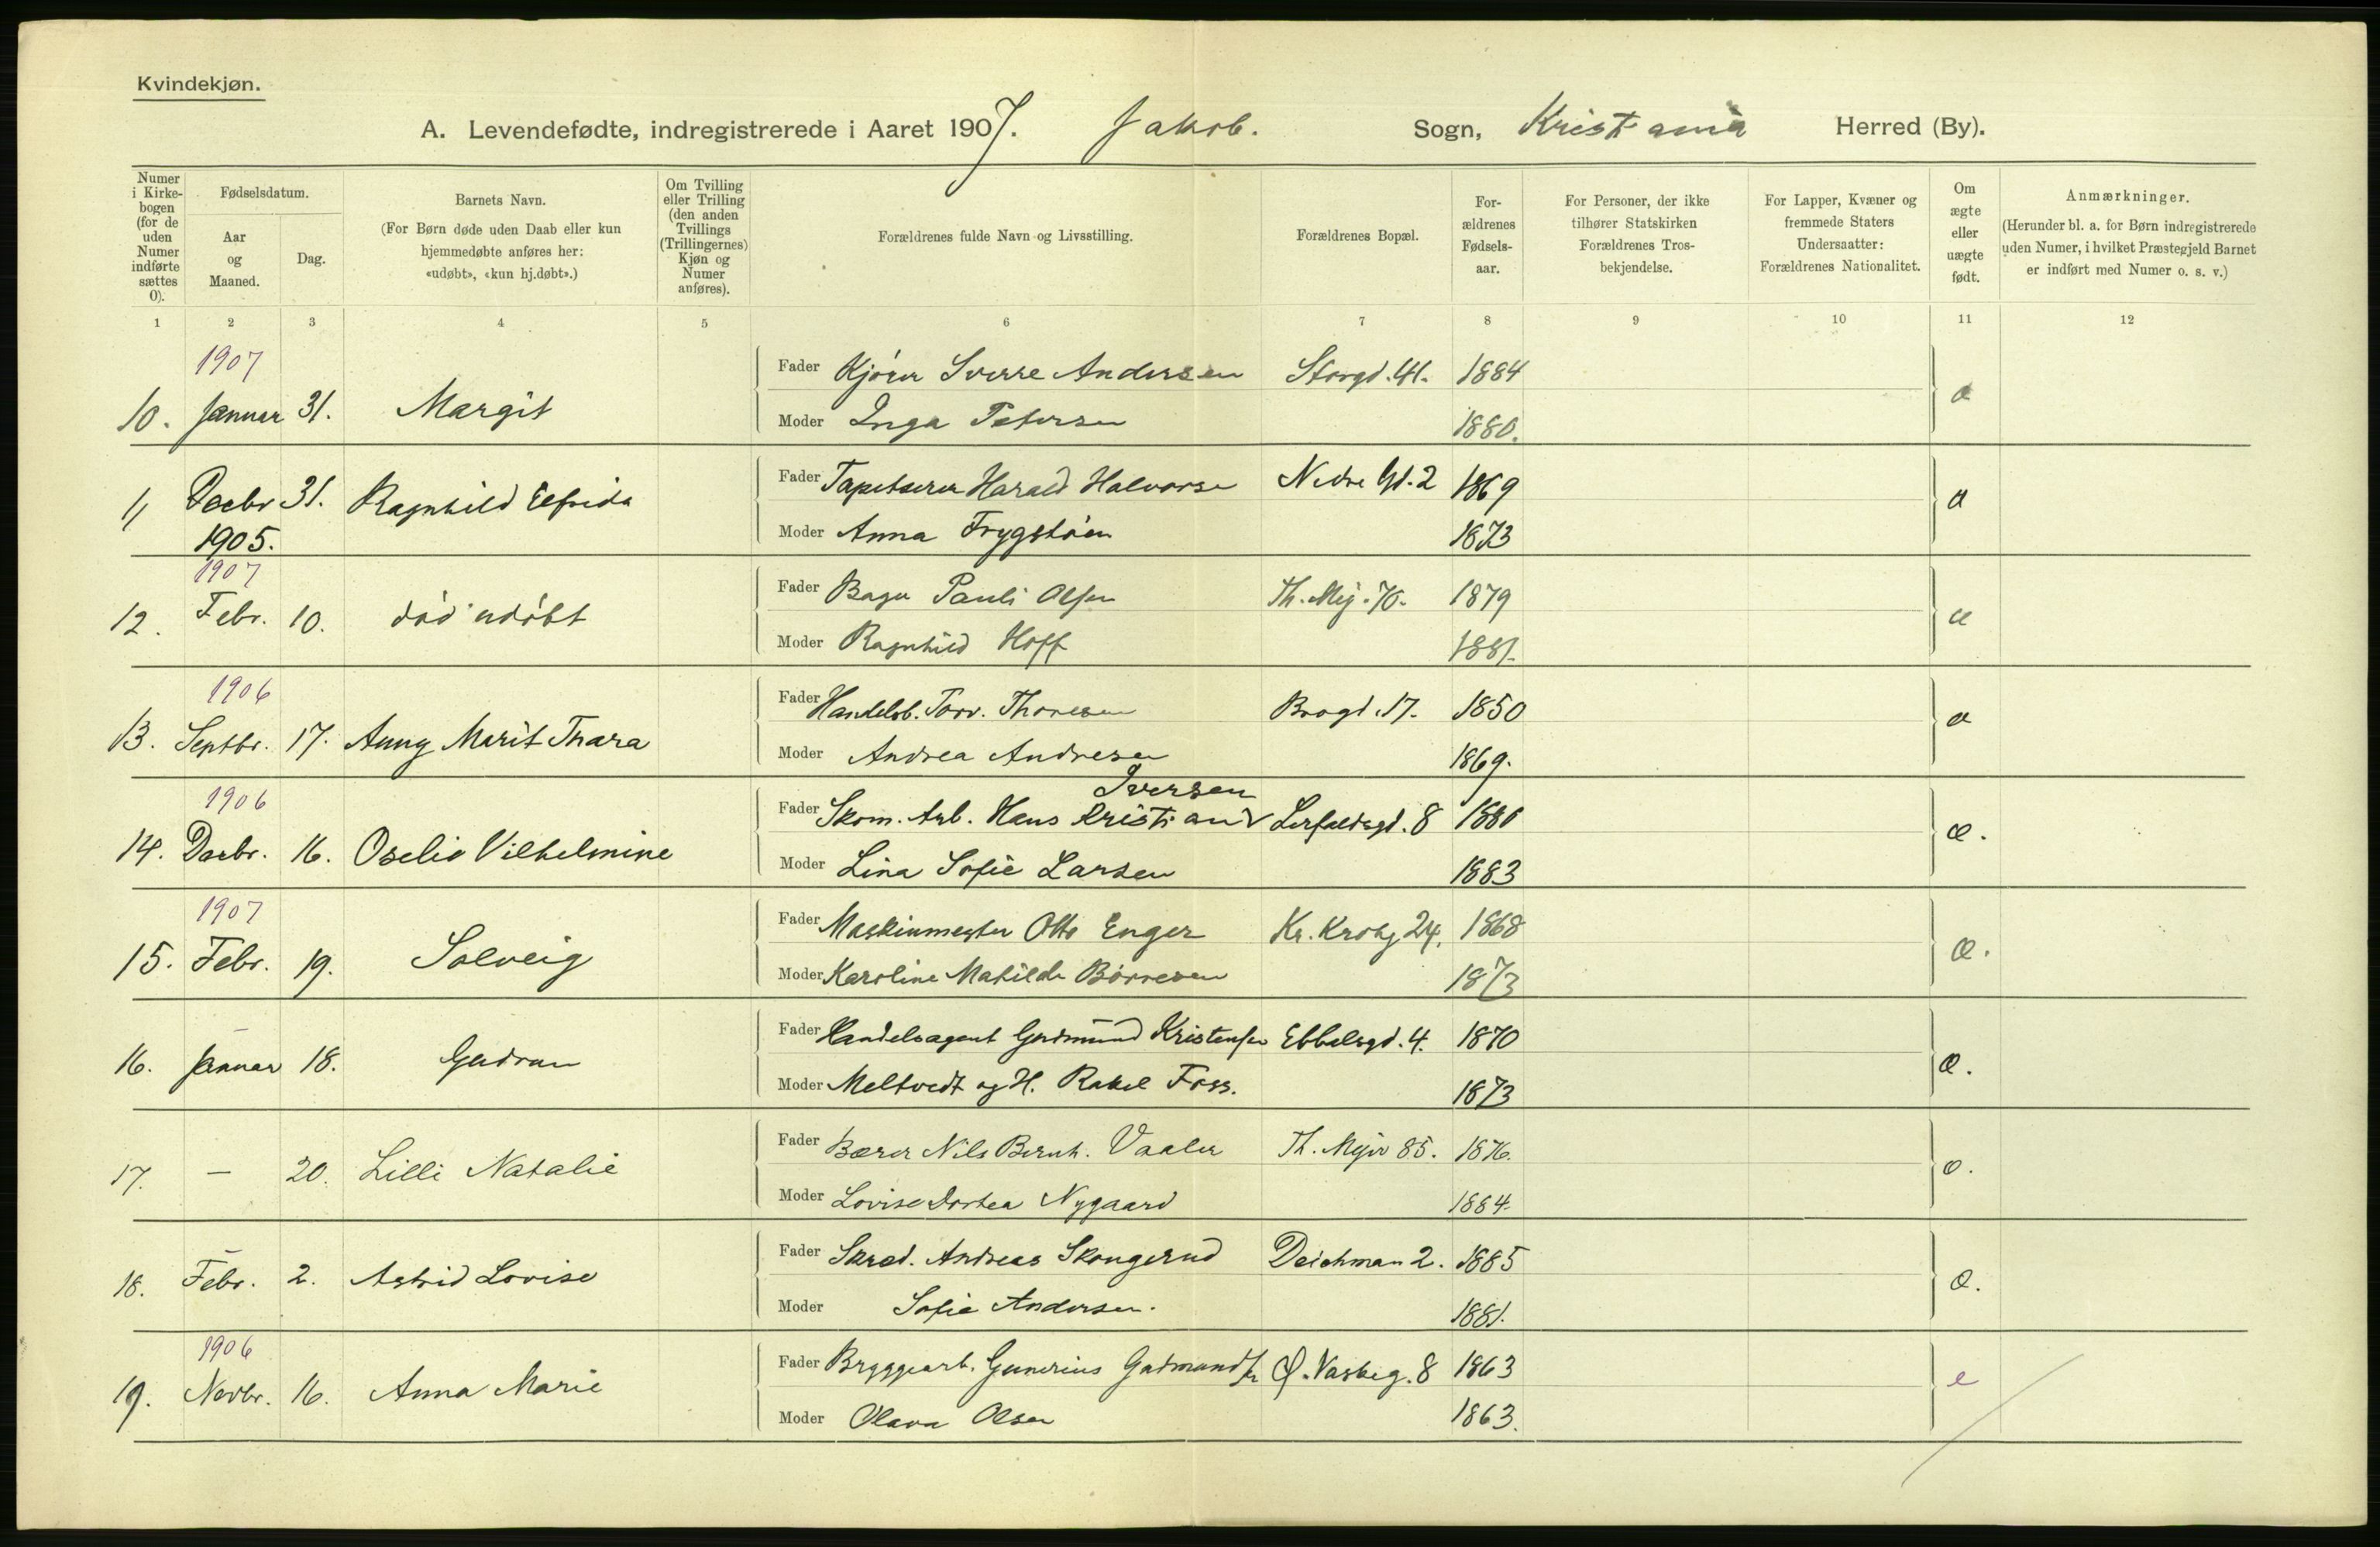 Kvindekjøn.
A. Levendefødte, indregistrerede i Aaret 1907. Jakob. Sogn, Kristania Herred (By).
Numer i Kirkebogen (for de uden Numer indførte sættes 0).
Fødselsdatum.
Aar og Maaned.
Dag.
Barnets Navn.
(For Børn døde uden Daab eller kun hjemmedøbte anføres her: «udøbt», «kun hj.døbt».)
Om Tvilling eller Trilling (den anden Tvillings (Trillingernes) Kjøn og Numer anføres).
Forældrenes fulde Navn og Livsstilling.
Forældrenes Bopæl.
Forældrenes Fødselsaar.
For Personer, der ikke tilhører Statskirken Forældrenes Trosbekjendelse.
For Lapper, Kvæner og fremmede Staters Undersaatter: Forældrenes Nationalitet.
Om ægte eller uægte født.
Anmærkninger.
(Herunder bl. a. for Børn indregistrerede uden Numer, i hvilket Præstegjeld Barnet er indført med Numer o. s. v.)
1 2 3 4 5 6 7 8 9 10 11 12
1907
10. Januar 31. Margit
Fader Kjører Sverre Andersen Storgd. 41. 1884
Moder Inga Petersen 1880.
11 Decbr 31. Ragnhild Elfrida
1905.
Fader Tapetserer Harald Halvorse Nedre Gd. 2 1869
Moder Anna Frygstøen 1873
1907
12. Febr. 10. død udøbt
Fader Bager Pauli Olsen Th. Mej. 70. 1879
Moder Ragnhild Hoff 1881.
1906
13. Septbr. 17. Anny Marit Thara
Fader Handelsb. Torv. Thoresen Brogd. 17. 1850
Moder Andrea Andresen 1869.
1906
14. Decbr. 16. Oselie Vilhelmine
Iversen
Fader Skom. Arb. Hans Kristian Lerfaldsgd. 8 1880
Moder Lina Sofie Larsen 1883
1907
15. Febr. 19. Solveig
Fader Maskinmester Otto Enger Kr. Krohg 24. 1868
Moder Karoline Matilde Børresen 1873
16. Januar 18. Gudrun
Fader Handelsagent Gudmund Kristensen Ebbelsgd. 4. 1870
Moder Meltvedt og H. Rakel Foss. 1873
17. — 20. Lilli Natalie
Fader Bærer Nils Bernh. Vaaler Th. Mejer 85. 1876.
Moder Lovise Dortea Nygaard 1884.
18. Febr. 2. Astrid Lovise
Fader Skræd. Andreas Skongerud Deichman 2. 1885
Moder Sofie Andersen. 1881.
1906
19. Novbr. 16. Anna Marie
Fader Bryggearb. Gunerius Gudmundsen Ø. Vaskeg. 8 1863 e
Moder Olava Olsen 1863.